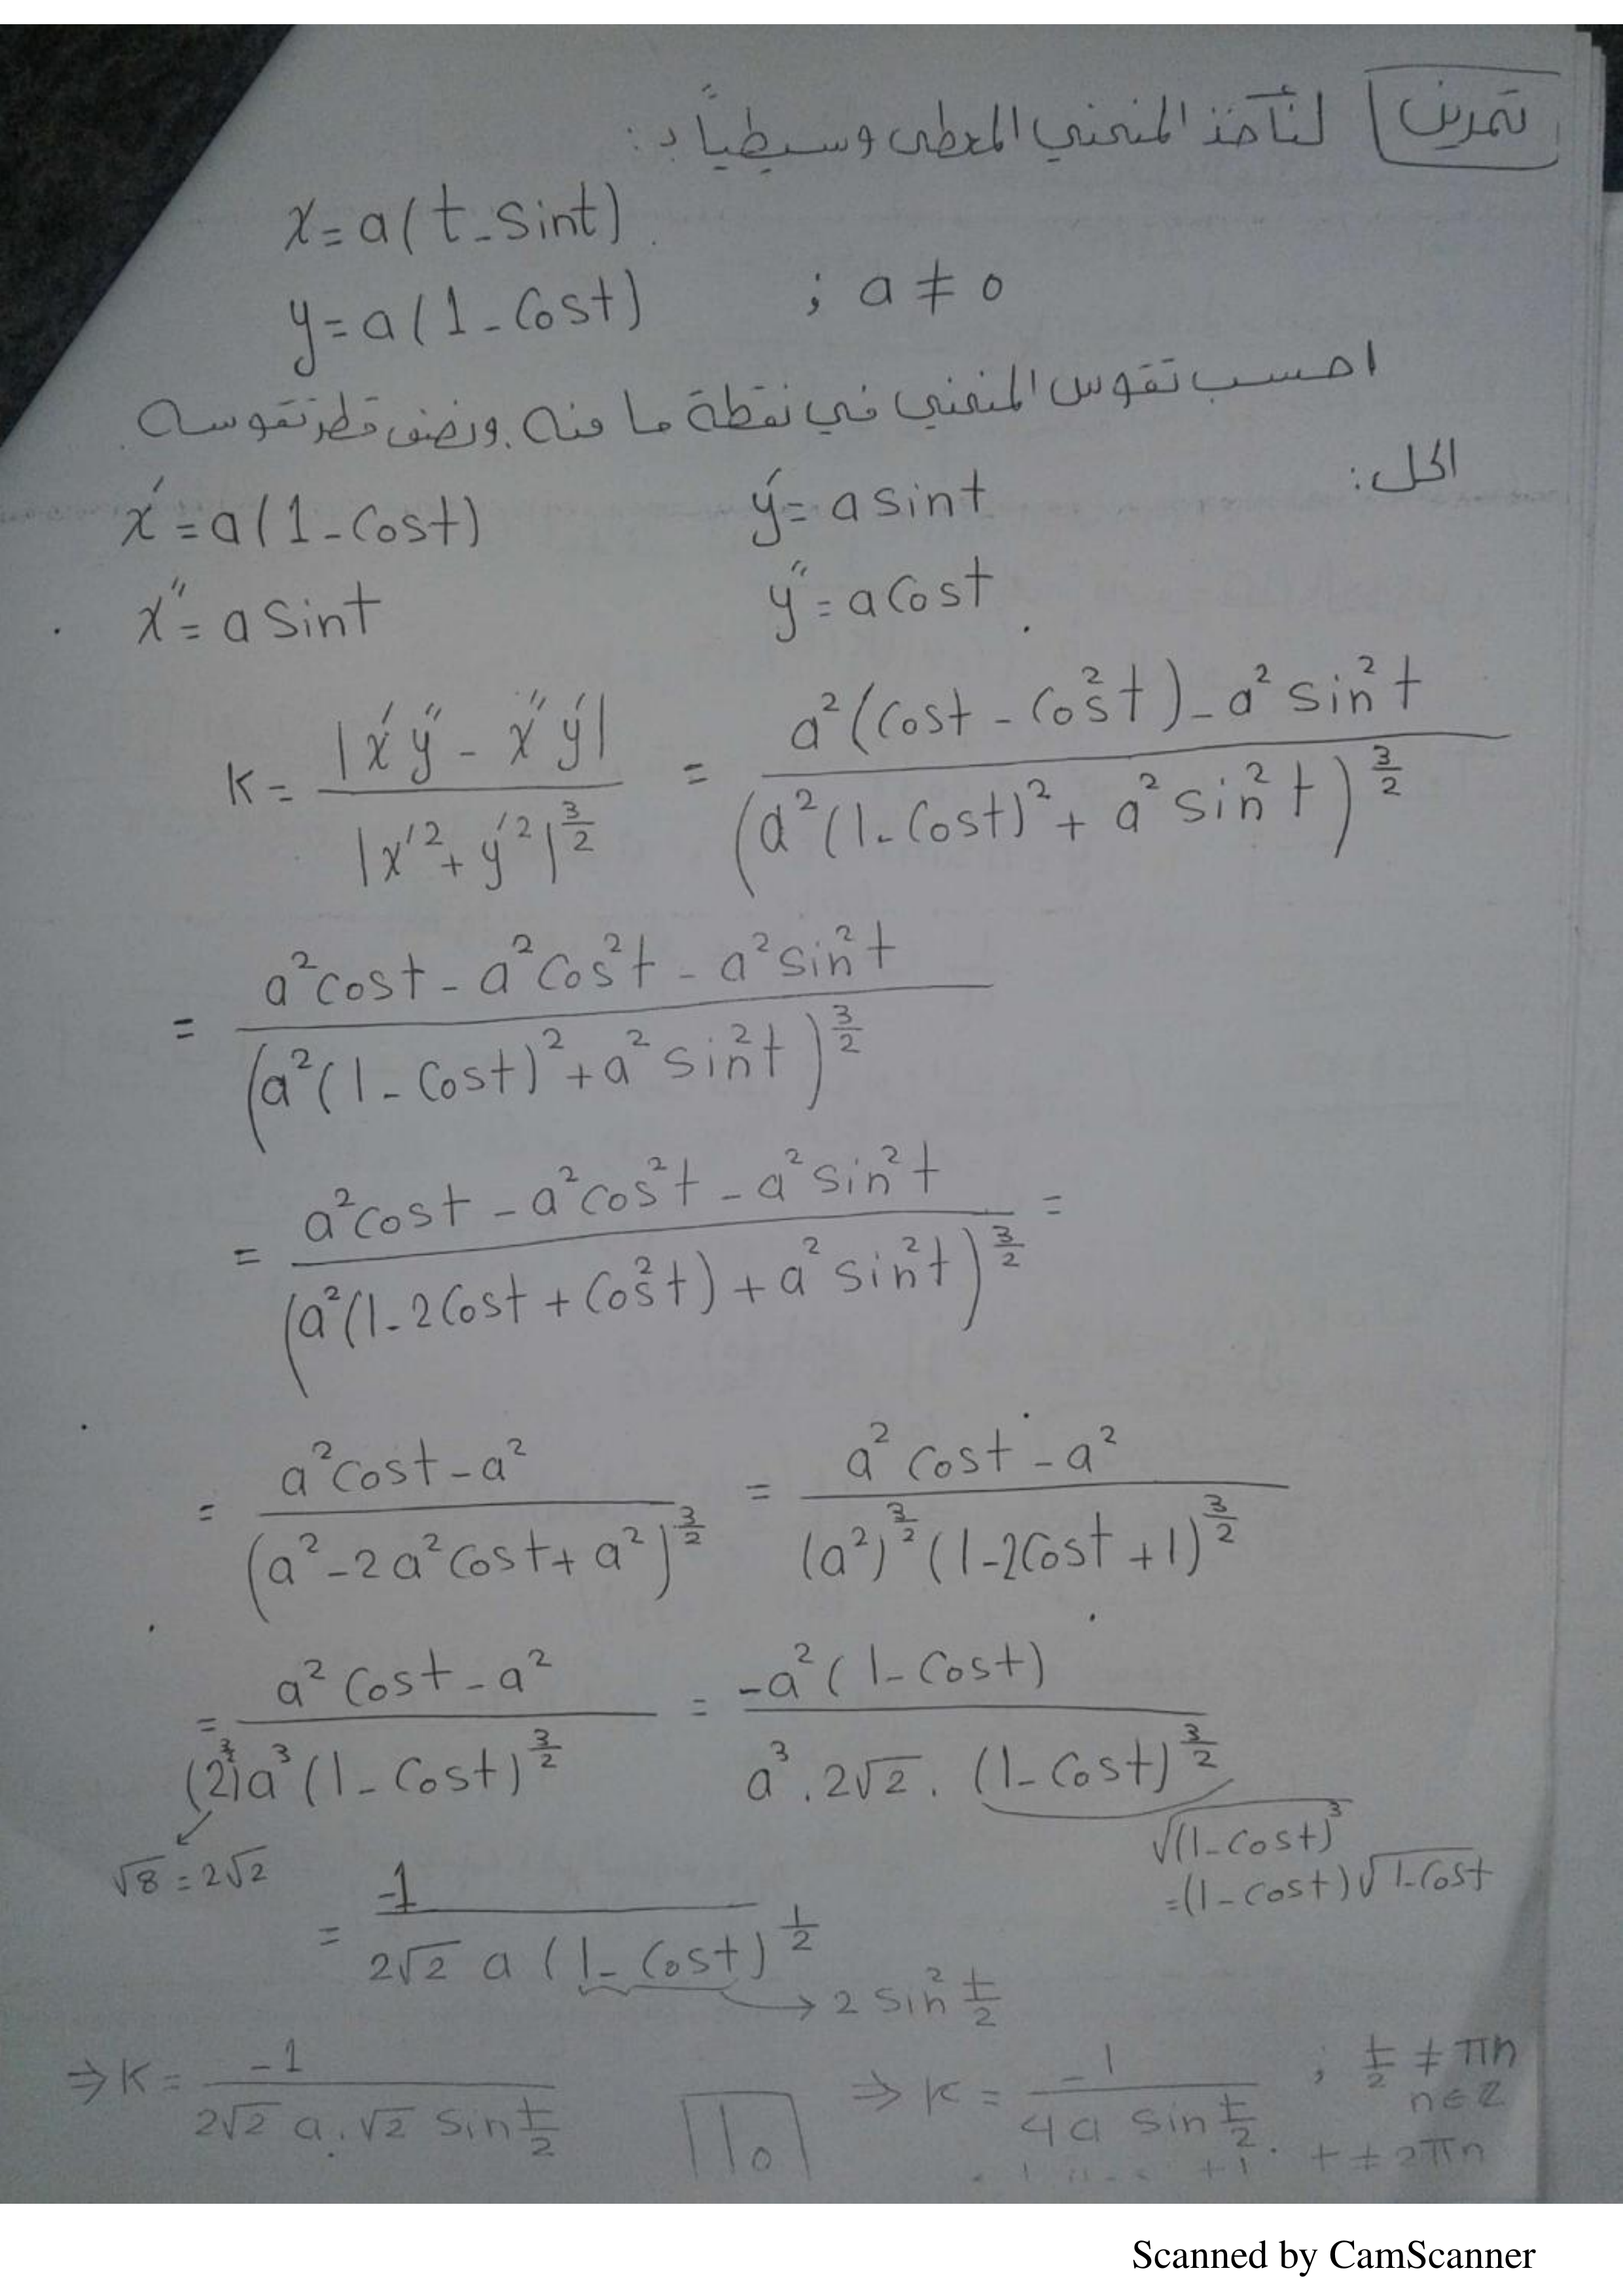 تمرين لنأخذ المنحني المعطى وسيطياً بـ:
x = a(t - sint)
y = a(1 - Cost) ; a ≠ 0
احسب تقوس المنحني في نقطة ما منه. ونصف قطر تقوسه.
الحل:
x′ = a(1 - Cost) y′ = a sint
x″ = a sint y″ = a Cost
K = |x′y″ - x″y′| / |x′² + y′²|^(3/2) = a²(Cost - Cos²t) - a² sin²t / (a²(1 - Cost)² + a² sin²t)^(3/2)
= a²cost - a²Cos²t - a²sin²t / (a²(1 - Cost)² + a² sin²t)^(3/2)
= a²cost - a²cos²t - a²sin²t / (a²(1 - 2Cost + Cos²t) + a² sin²t)^(3/2) =
= a²cost - a² / (a² - 2a²Cost + a²)^(3/2) = a² cost - a² / (a²)^(3/2) (1 - 2Cost + 1)^(3/2)
= a² Cost - a² / (2)^(3/2) a³ (1 - Cost)^(3/2) = -a²(1 - Cost) / a³ . 2√2 . (1 - Cost)^(3/2)
√8 = 2√2
√(1 - Cost)³
= (1 - cost)√1-Cost
= -1 / 2√2 a (1 - Cost)^(1/2) → 2 sin² t/2
⇒ K = -1 / 2√2 a . √2 Sin t/2 ⇒ K = -1 / 4a Sin t/2 . ; t/2 ≠ πn
n ∈ Z
t ≠ 2πn
10
Scanned by CamScanner